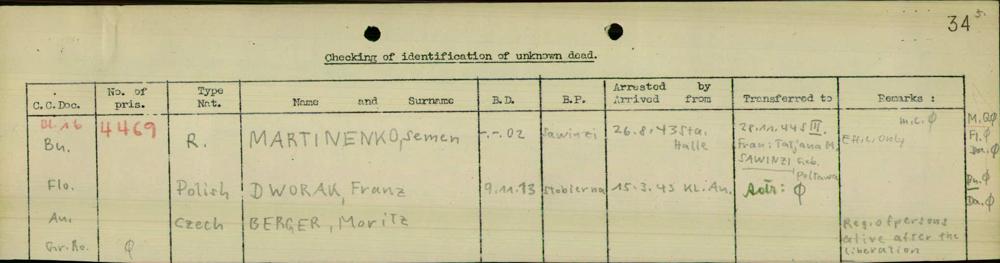 34 5.
Checking of identification of unknown dead.
C.C.Doc. No. of pris. Type Nat. Name and Surname B.D. B.P. Arrested by Arrived from Transferred to Remarks :
4469 m.c. Ø M. Ø
Bu. R. MARTINENKO, Semen -.-.02 Sawinzi 26.8.43 Sta. Halle 28.11.44 S III. Eff. c. only Fl. Ø
Frau: Tatjana M. Da. Ø
SAWINZI Geb. Poltawa
Flo. Polish DWORAK, Franz 9.11.13 Stobierna 15.3.45 KL. Au. Ø Bu. Ø
Da. Ø
Au. Czech BERGER, Moritz Reg. of persons
alive after the
Gr.Ro. Ø liberation